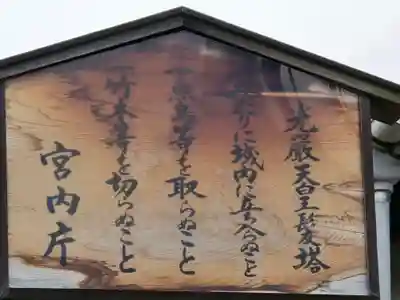 光厳天皇髪塔
一、みだりに域内に立入らぬこと
一、魚鳥等を取らぬこと
一、竹木等を切らぬこと
宮内庁